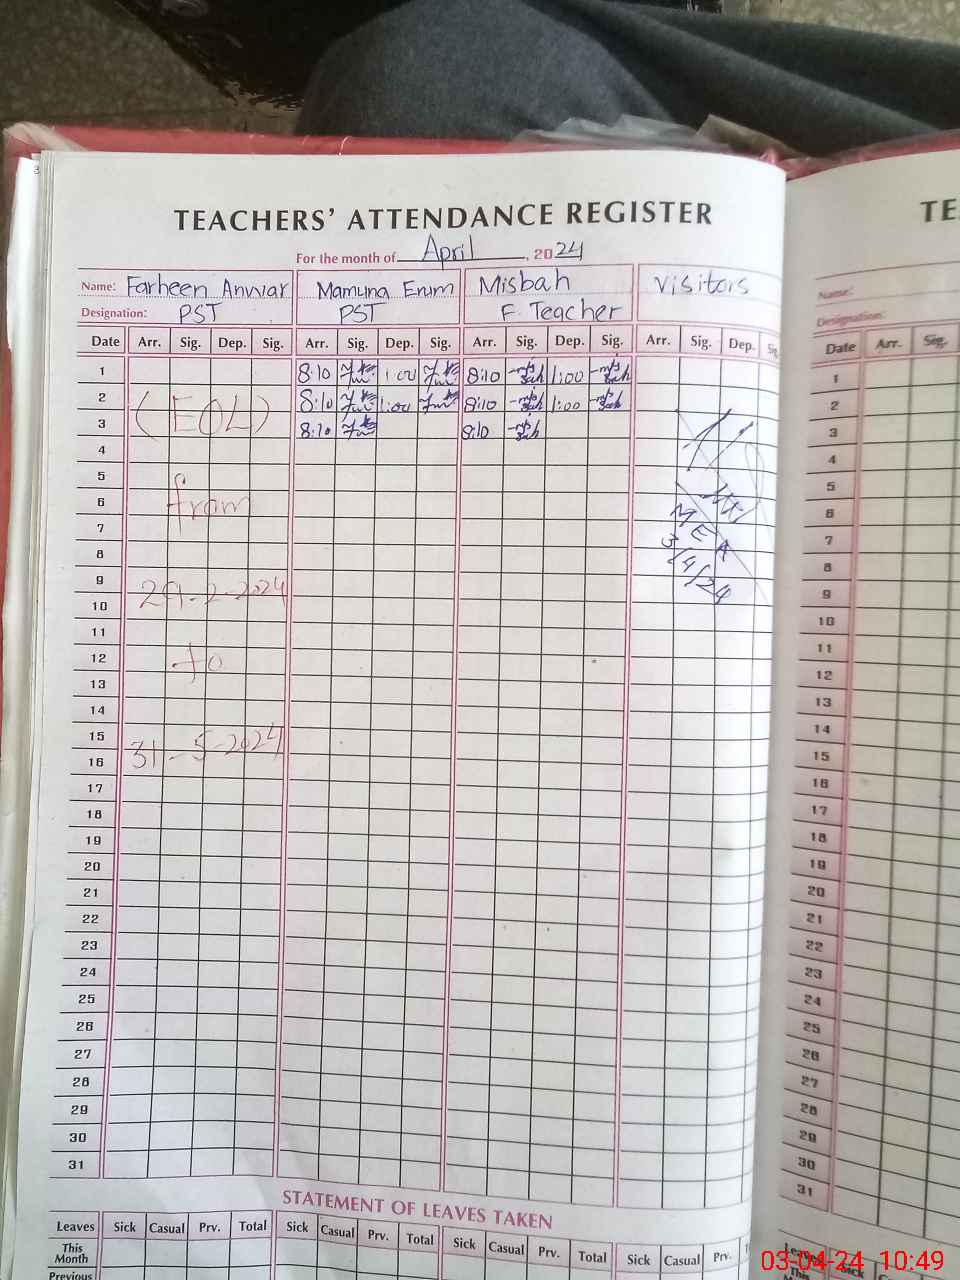 TEACHERS' ATTENDANCE REGISTER
For the month of April, 2024
Name: Farheen Anwar Mamuna Erum Misbah Visitors
Designation: PST PST F. Teacher
Date Arr. Sig. Dep. Sig. Arr. Sig. Dep. Sig. Arr. Sig. Dep. Sig. Arr. Sig. Dep. Sig.
1 8:10 1:00 8:10 1:00
2 8:10 1:00 8:10 1:00
3 (EOL) 8:10 8:10
4
5
6 from
7 MEA
8 3/4/24
9
10 29-2-2024
11
12 to
13
14
15
16 31-5-2024
17
18
19
20
21
22
23
24
25
26
27
28
29
30
31
STATEMENT OF LEAVES TAKEN
Leaves Sick Casual Prv. Total Sick Casual Prv. Total Sick Casual Prv. Total Sick Casual Prv.
This Month
Previous
TE
Name:
Designation:
Date Arr. Sig.
1
2
3
4
5
6
7
8
9
10
11
12
13
14
15
16
17
18
19
20
21
22
23
24
25
26
27
28
29
30
31
Leaves Sick
This
03-04-24 10:49